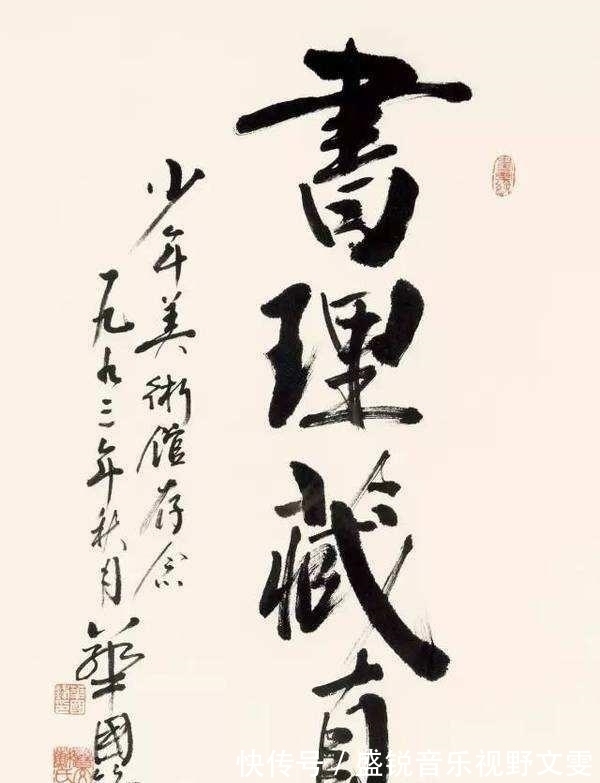 書理藏真
少年美術館存念
一九九三年秋月
華國
快传号 / 盛锐音乐视野文雯